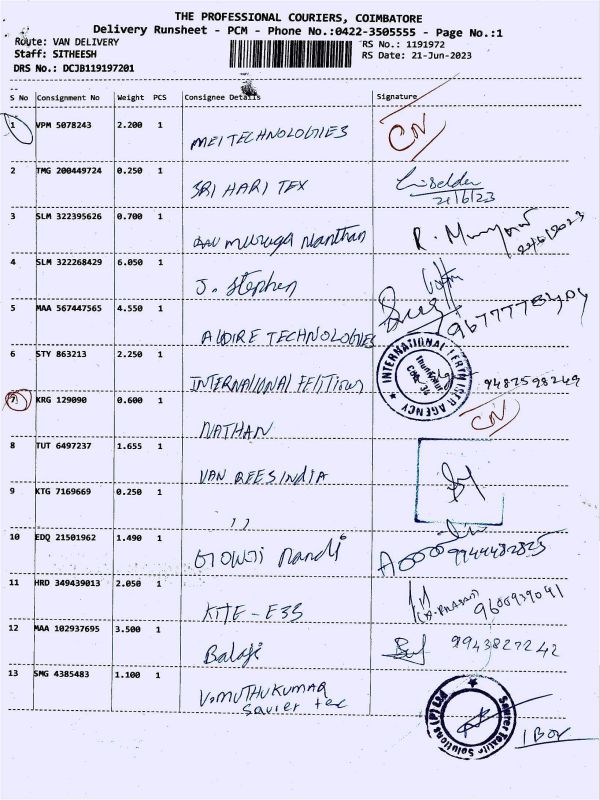 THE PROFESSIONAL COURIERS, COIMBATORE
Delivery Runsheet - PCM - Phone No.:0422-3505555 - Page No.:1
Route: VAN DELIVERY
RS No.: 1191972
Staff: SITHEESH
RS Date: 21-Jun-2023
DRS No.: DCJB119197201
S No Consignment No Weight PCS Consignee Details Signature
1 VPM 5078243 2.200 1 MEI TECHNOLOGIES CN
2 TMG 200449724 0.250 1 SRI HARI TEX
21/6/23
3 SLM 322395626 0.700 1 muruga manthan R.
4 SLM 322268429 6.050 1 J. Stephen
5 MAA 567447565 4.550 1 AUDIRE TECHNOLOGIES
6 STY 863213 2.250 1 INTERNATIONAL 9487598249
INTERNATIONAL AGENCY
7 KRG 129090 0.600 1 NATHAN CN
8 TUT 6497237 1.655 1 VAN REES INDIA
9 KTG 7169669 0.250 1 ,,
10 EDQ 21501962 1.490 1 GOWJI Nandi 9944482825
11 HRD 349439013 2.050 1 KITE-E3S 9600939041
12 MAA 102937695 3.500 1 Balaji 9943827242
13 SMG 4385483 1.100 1 V.MUTHUKUMAR
Savier tex
Savier Textile Solutions (P) Ltd
1 BOX